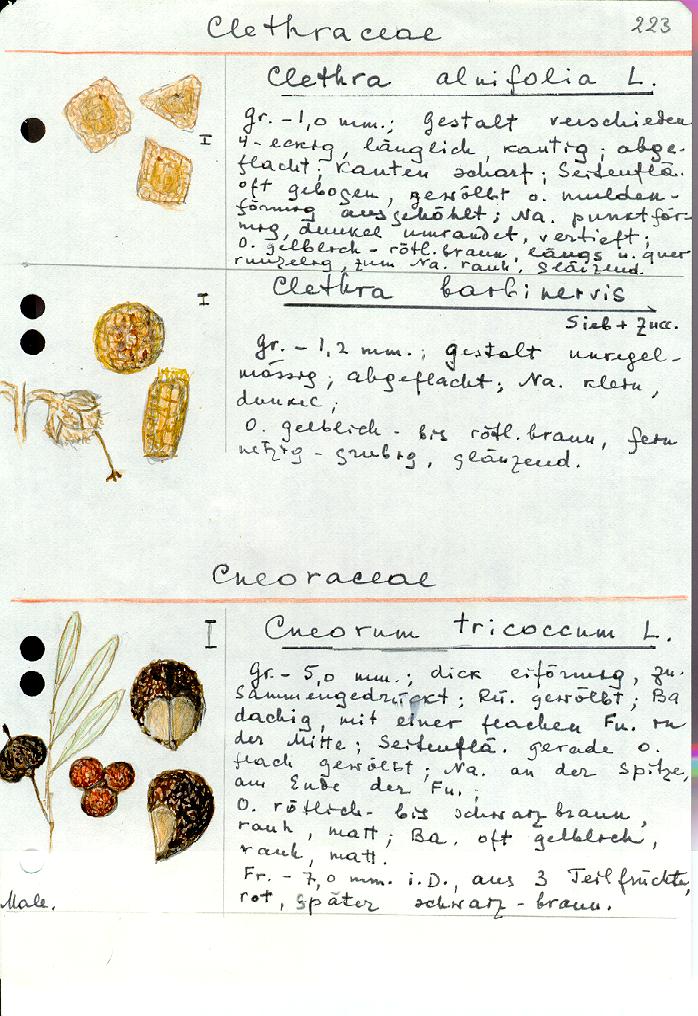 Clethraceae
223
Clethra alnifolia L.
Gr. - 1,0 mm.; Gestalt verschieden
4-eckig, länglich, kantig; abge-
flacht; Kanten scharf; Seitenflä.
oft gebogen, gewölbt o. mulden-
förmig ausgehöhlt; Na. punktför-
mig, dunkel umrandet, vertieft;
O. gelblich - rötl. braun, längs u. quer
runzelig, zum Na. rauh, glänzend.
Clethra barbinervis
Sieb + Zucc.
Gr. - 1,2 mm.; Gestalt unregel-
mässig; abgeflacht; Na. klein,
dunkel;
O. gelblich - bis rötl. braun, fein
netzig - grubig, glänzend.
Cneoraceae
Cneorum tricoccum L.
Gr. - 5,0 mm.; dick eiförmig, zu-
sammengedrückt; Rü. gewölbt; Ba
dachig, mit einer flachen Fu. in
der Mitte; Seitenflä. gerade o.
flach gewölbt; Na. an der Spitze,
am Ende der Fu.;
O. rötlich - bis schwarzbraun,
rauh, matt; Ba. oft gelblich,
rauh, matt.
Fr. - 7,0 mm. i.D., aus 3 Teilfrüchte,
rot, später schwarz - braun.
Male.